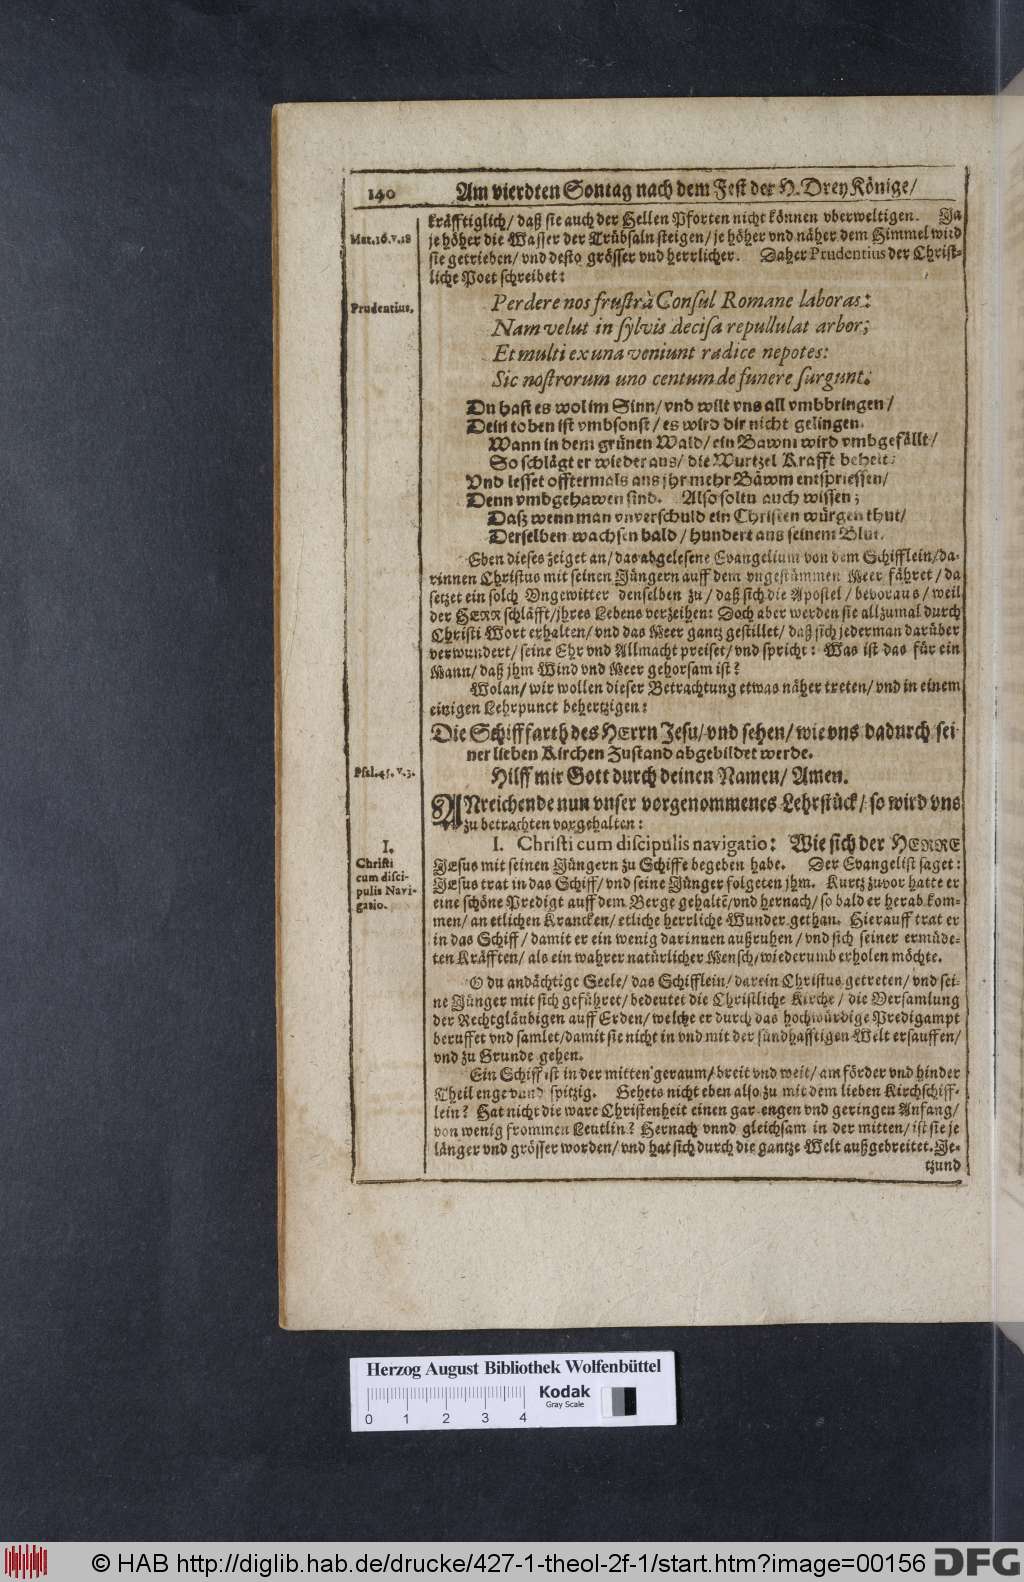 140 Am vierdten Sontag nach dem Fest der H. Drey Könige/
kräfftiglich/ daß sie auch der Hellen Pforten nicht können vberweltigen. Ja
Mat.16.v.18
je höher die Wasser der Trübsaln steigen/ je höher vnd näher dem Himmel wird
sie getrieben/ vnd desto grösser vnd herrlicher. Daher Prudentius der Christ-
liche Poet schreibet:
Prudentius.
Perdere nos frustrà Consul Romane laboras:
Nam velut in sylvis decisa repullulat arbor;
Et multi ex una veniunt radice nepotes:
Sic nostrorum uno centum de funere surgunt.
Du hast es wol im Sinn/ vnd wilt vns all vmbbringen/
Dein toben ist vmbsonst/ es wird dir nicht gelingen.
Wann in dem grünen Wald/ ein Bawm wird vmbgefällt/
So schlägt er wieder aus/ die Wurtzel Krafft beheit:
Vnd lesset offtermals aus jhr mehr Bäwm entspriessen/
Denn vmbgehawen sind. Also soltu auch wissen;
Daß wenn man vnverschuld ein Christen würgen thut/
Derselben wachsen bald/ hundert aus seinem Blut.
Eben dieses zeiget an/ das abgelesene Evangelium von dem Schifflein/ da-
rinnen Christus mit seinen Jüngern auff dem vngestümmen Meer fähret/ da
setzet ein solch Vngewitter denselben zu/ daß sich die Apostel/ bevoraus/ weil
der HERR schläfft/ jhres Lebens verzeihen: Doch aber werden sie allzumal durch
Christi Wort erhalten/ vnd das Meer gantz gestillet/ daß sich jederman darüber
verwundert/ seine Ehr vnd Allmacht preiset/ vnd spricht: Was ist das für ein
Mann/ daß jhm Wind vnd Meer gehorsam ist?
Wolan/ wir wollen dieser Betrachtung etwas näher treten/ vnd in einem
einigen Lehrpunct behertzigen:
Die Schiffarth des HErrn Jesu/ vnd sehen/ wie vns dadurch sei-
ner lieben Kirchen Zustand abgebildet werde.
Psal.45.v.3.
Hilff mir Gott durch deinen Namen/ Amen.
ANreichende nun vnser vorgenommenes Lehrstück/ so wird vns
zu betrachten vorgehalten:
I.
Christi
cum disci-
pulis Navi-
gatio.
I. Christi cum discipulis navigatio: Wie sich der HERRE
JEsus mit seinen Jüngern zu Schiffe begeben habe. Der Evangelist saget:
JEsus trat in das Schiff/ vnd seine Jünger folgeten jhm. Kurtz zuvor hatte er
eine schöne Predigt auff dem Berge gehaltẽ/ vnd hernach/ so bald er herab kom-
men/ an etlichen Krancken/ etliche herrliche Wunder gethan. Hierauff trat er
in das Schiff/ damit er ein wenig darinnen außruhen/ vnd sich seiner ermüde-
ten Kräfften/ als ein wahrer natürlicher Mensch/ wiederumb erholen möchte.
O du andächtige Seele/ das Schifflein/ darein Christus getreten/ vnd sei-
ne Jünger mit sich geführet/ bedeutet die Christliche Kirche/ die Versamlung
der Rechtgläubigen auff Erden/ welche er durch das hochwürdige Predigampt
beruffet vnd samlet/ damit sie nicht in vnd mit der sündhafftigen Welt ersauffen/
vnd zu Grunde gehen.
Ein Schiff ist in der mitten geraum/ breit vnd weit/ am förder vnd hinder
Theil enge vnnd spitzig. Gehets nicht eben also zu mit dem lieben Kirchschiff-
lein? Hat nicht die ware Christenheit einen gar engen vnd geringen Anfang/
von wenig frommen Leutlin? Hernach vnnd gleichsam in der mitten/ ist sie je
länger vnd grösser worden/ vnd hat sich durch die gantze Welt außgebreitet. Je-
tzund
Herzog August Bibliothek Wolfenbüttel
Kodak
Gray Scale
0 1 2 3 4
© HAB http://diglib.hab.de/drucke/427-1-theol-2f-1/start.htm?image=00156 DFG